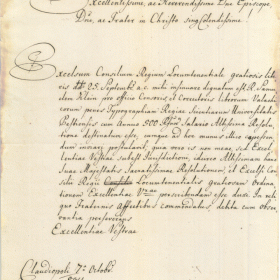 Excellentissime, ac Reverendissime Dne Episcope
Dne, ac Frater in Christo Sing. Colendissime!
Excelsum Consilium Regium Locumtenentiale gratiosis literis
25. Septembr. a. c. mihi insinuare dignatum est, R. Samuelem Klein pro officio Censoris, et Correctoris librorum Valachicorum penes Typographiam Regiam Scientiarum Universitatis
Pesthensis cum Annuo Salario Altissima Resolutione
destinatum esse, eumque ad hoc munus illico capessendum
inviari, postulavit, quia vero is non meae, sed Excellentiae
Vestrae subest Jurisdictioni, idcirco Altissimam hanc
Suae Majestatis Sacratissimae Resolutionem, et Excelsi Consilii
Regii Locumtenentialis gratiosam Ordinationem
Excellentiae Vrae perscribendam esse duxi. In reliquo
Fraternis Affectibus commendatus, debito cum observantia
persevero
Excellentiae Vestrae
Claudiopoli 7a Octobr.